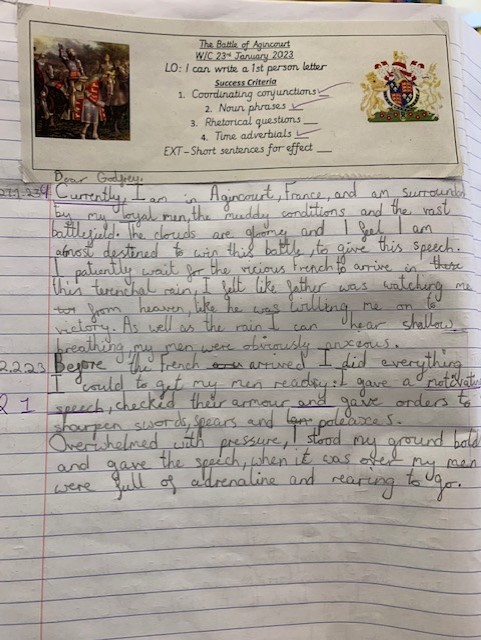 The Battle of Agincourt
W/C 23rd January 2023
LO: I can write a 1st person letter
Success Criteria
1. Coordinating conjunctions
2. Noun phrases
3. Rhetorical questions
4. Time adverbials
EXT - Short sentences for effect
Dear Godfrey,
Currently I am in Agincourt, France, and am surrounded
by my loyal men, the muddy conditions and the vast
battlefield. The clouds are gloomy and I feel I am
almost destened to win this battle, to give this speech.
I patiently wait for the vicious French to arrive in these
this terenchal rain, I felt like father was watching me
from heaven, like he was willing me on to
victory. As well as the rain I can hear shallow
breathing my men were obviously anxeous.
2.2.23 Before the French arrived I did everything
I could to get my men ready: I gave a motivation
2 1 speech, checked their armour and gave orders to
sharpen swords, spears and poleaxes.
Overwhelmed with pressure, I stood my ground bold
and gave the speech, when it was over my men
were full of adrenaline and rearing to go.